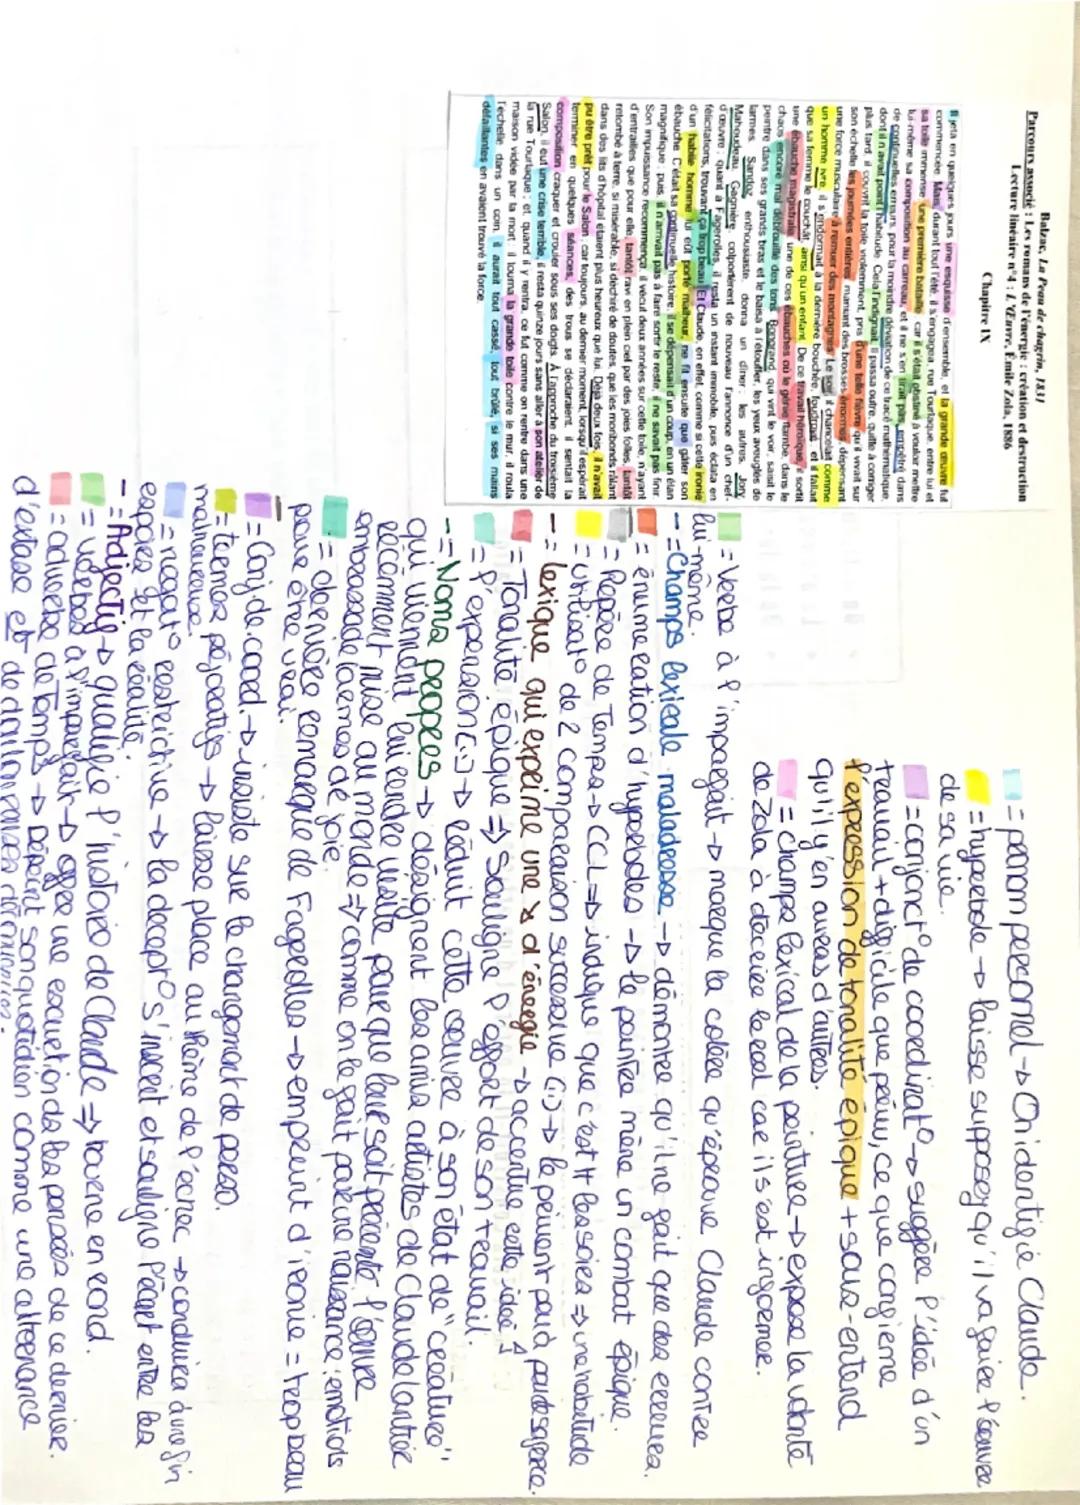 Balzac, La Peau de chagrin, 1831
Parcours associé : Les romans de l'énergie : création et destruction
Lecture linéaire n°4 : L'Œuvre, Émile Zola, 1886
Chapitre IX
Il jeta en quelques jours une esquisse d'ensemble, et la grande œuvre fut
commencée. Mais, durant tout l'été, il s'engagea, rue Tourlaque, entre lui et
sa toile immense, une première bataille, car il s'était obstiné à vouloir mettre
lui-même sa composition au carreau, et il ne s'en tirait pas, empêtré dans
de continuelles erreurs, pour la moindre déviation de ce tracé mathématique,
dont il n'avait point l'habitude. Cela l'indignait. Il passa outre, quitte à corriger
plus tard, il couvrit la toile violemment, pris d'une telle fièvre, qu'il vivait sur
son échelle les journées entières, maniant des brosses énormes, dépensant
une force musculaire à remuer des montagnes. Le soir, il chancelait comme
un homme ivre, il s'endormait à la dernière bouchée, foudroyé ; et il fallait
que sa femme le couchât, ainsi qu'un enfant. De ce travail héroïque, il sortit
une ébauche magistrale, une de ces ébauches où le génie flambe, dans le
chaos encore mal débrouillé des tons. Bongrand, qui vint le voir, saisit le
peintre dans ses grands bras et le baisa à l'étouffer, les yeux aveuglés de
larmes. Sandoz, enthousiaste, donna un dîner ; les autres, Jory,
Mahoudeau, Gagnière, colportèrent de nouveau l'annonce d'un chef-
d'œuvre ; quant à Fagerolles, il resta un instant immobile, puis éclata en
félicitations, trouvant ça trop beau. Et Claude, en effet, comme si cette ironie
d'un habile homme lui eût porté malheur, ne fit ensuite que gâter son
ébauche. C'était sa continuelle histoire, il se dépensait d'un coup, en un élan
magnifique ; puis, il n'arrivait pas à faire sortir le reste, il ne savait pas finir.
Son impuissance recommença, il vécut deux années sur cette toile, n'ayant
d'entrailles que pour elle, tantôt ravi en plein ciel par des joies folles, tantôt
retombé à terre, si misérable, si déchiré de doutes, que les moribonds râlant
dans des lits d'hôpital étaient plus heureux que lui. Déjà deux fois, il n'avait
pu être prêt pour le Salon ; car toujours, au dernier moment, lorsqu'il espérait
terminer en quelques séances, des trous se déclaraient, il sentait la
composition craquer et crouler sous ses doigts. À l'approche du troisième
Salon, il eut une crise terrible, il resta quinze jours sans aller à son atelier de
la rue Tourlaque ; et, quand il y rentra, ce fut comme on rentre dans une
maison vidée par la mort : il tourna la grande toile contre le mur, il roula
l'échelle dans un coin, il aurait tout cassé, tout brûlé, si ses mains
défaillantes en avaient trouvé la force.
= pronom personnel → On identifie Claude.
= hyperbole → laisse supposer qu'il va faire l'œuvre
de sa vie.
= conjonct° de coordinat° → suggère l'idée d'un
travail + difficile que prévu, ce que confirme
l'expression de tonalité épique + sous-entend
qu'il y'en auras d'autres.
= champs lexical de la peinture → expose la volonté
de Zola à décrire le réel car il s'est informer.
= Verbe à l'imparfait → marque la colère qu'éprouve Claude contre
lui-même.
-= Champs lexicale maladresse → démontre qu'il ne fait que des erreurs.
= énumération d'hyperboles → le peintre mène un combat épique.
= Repère de Temps → CCL => indique que c'est tt les soirs => une habitude
= Utilisat° de 2 comparaison successive (:) → le peuvent paid pour se faire.
-= lexique qui exprime une x d'énergie → accentue cette idée ↑
= Tonalité épique => Souligne l'effort de son travail.
= l'expression (:) → Réduit cette œuvre à son état de "créature"
-= Noms propres → désignent les amis artistes de Claude Lantier
qui viennent lui rendre visite pour que leur soit présenté l'œuvre
récemment mise au monde => comme on le fait pour une naissance : émotions
embrassade larmes de joie.
= dernière remarque de Fagerolles → empreint d'ironie = trop beau
pour être vrai.
= Conj de. coord. → insiste sur le changement de perso.
= termes péjoratifs → laisse place au thème de l'échec → conduira à une fin
malheureuse.
= négat° restrictive → la décept° s'inscrit et souligne l'écart entre les
espoirs et la réalité.
-= Adjectif → qualifie l'histoire de Claude => tourne en rond.
= verbes à l'imparfait → offre une exécution des pensées de ce dernier.
= adverbe de Temps → Dépeint son quotidien comme une alternance
d'extase et de